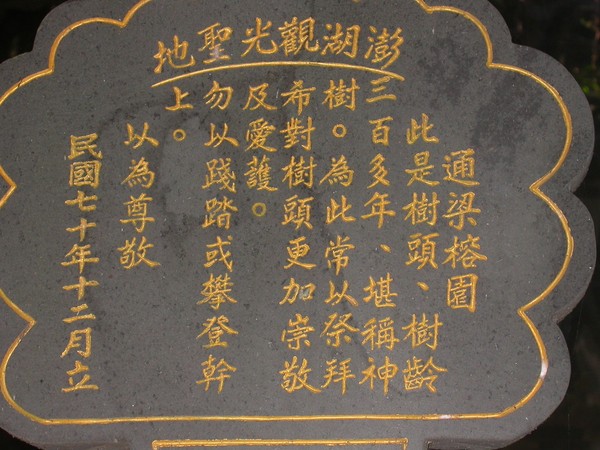 澎湖觀光聖地
通梁榕園
此是樹頭、樹齡
三百多年、堪稱神
樹。為此常以祭拜
希對樹頭更加崇敬
及愛護。
勿以踐踏或攀登幹
上。
以為尊敬
民國七十年十二月立